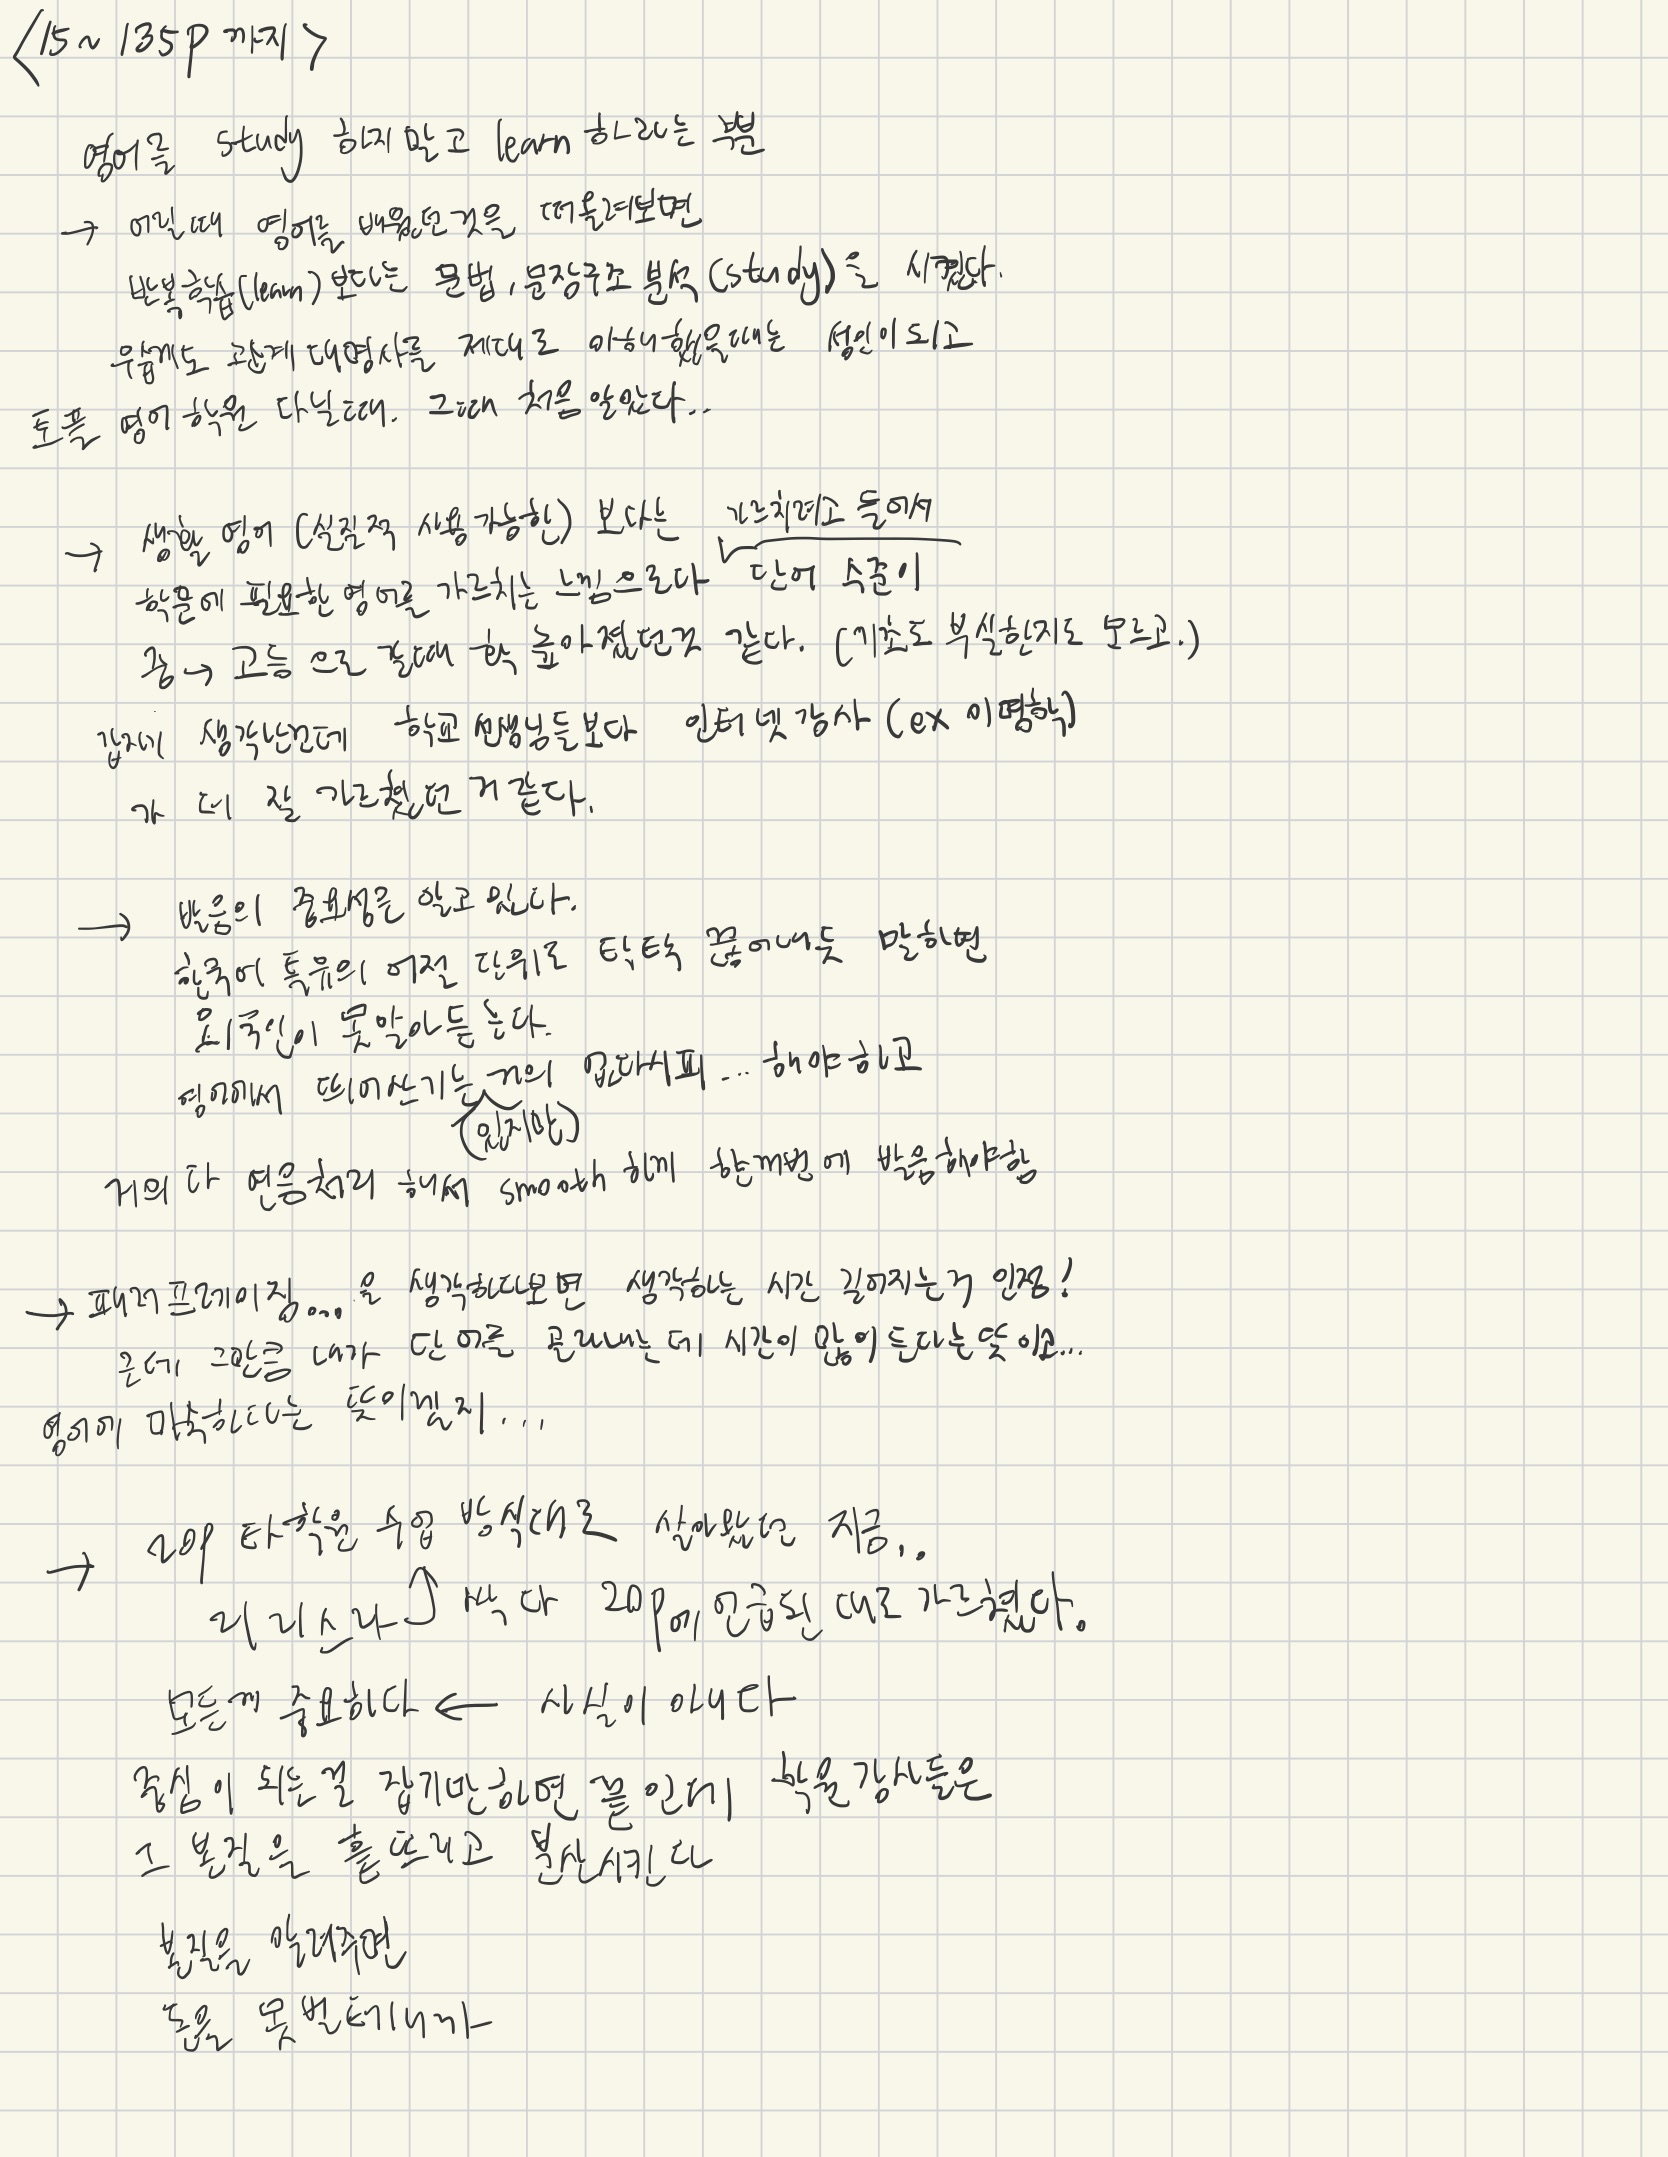 <15~135p 까지>
영어를 study 하지말고 learn 하라는 부분
→ 어릴때 영어를 배웠던것을 떠올려보면
반복학습(learn)보다는 문법, 문장구조 분석(study)을 시켰다.
우습게도 관계대명사를 제대로 이해했을때는 성인이되고
토플 영어학원 다닐때. 그때 처음알았다..
→ 생활영어 (실질적 사용가능한) 보다는 가르치려고 들어서
학문에 필요한 영어를 가르치는 느낌으로다 단어 수준이
중→고등으로 갈때 확 높아졌던것 같다. (기초도 부실한지도 모르고.)
갑자기 생각난건데 학교선생님들보다 인터넷강사(ex 이명학)
가 더 잘 가르쳤던거같다.
→ 발음의 중요성을 알고 있다.
한국어 특유의 어절 단위로 탁탁 끊어내듯 말하면
외국인이 못알아듣는다.
영어에서 띄어쓰기는 거의 없다시피... 해야하고
(있지만)
거의 다 연음처리 해서 smooth 하게 한꺼번에 발음해야함
→ 패러프레이징...을 생각하다보면 생각하는 시간 길어지는거 인정!
근데 그만큼 내가 단어를 골라내는데 시간이 많이든다는뜻이고...
영어에 미숙하다는 뜻이겠지....
→ 20p 타학원 수업 방식대로 살아왔던 지금..
싹 다 20p에 언급된대로 가르쳤다.
모든게 중요하다 ← 사실이 아니다
중심이 되는걸 잡기만하면 끝인데 학원강사들은
그 본질을 흩뜨리고 분산시킨다
본질을 알려주면
돈을 못벌테니까